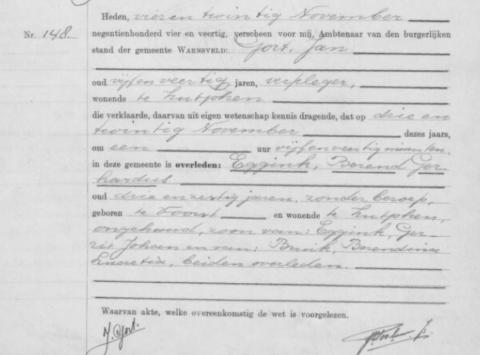 Heden, vier en twintig November
Nr. 148. negentienhonderd vier en veertig, verscheen voor mij, Ambtenaar van den burgerlijken
stand der gemeente WARNSVELD: Gort, Jan
oud vijf en veertig jaren, verpleger,
wonende te Zutphen
die verklaarde, daarvan uit eigen wetenschap kennis dragende, dat op drie en
twintig November dezes jaars,
om een uur vijf en veertig minuten
in deze gemeente is overleden: Eggink, Berend Ger-
hardus
oud drie en zestig jaren, zonder beroep,
geboren te Voorst en wonende te Zutphen,
ongehuwd, zoon van: Eggink, Ger-
rit Johan en van: Berendina
Lucretia, beiden overleden.
Waarvan akte, welke overeenkomstig de wet is voorgelezen.
J. Gort.